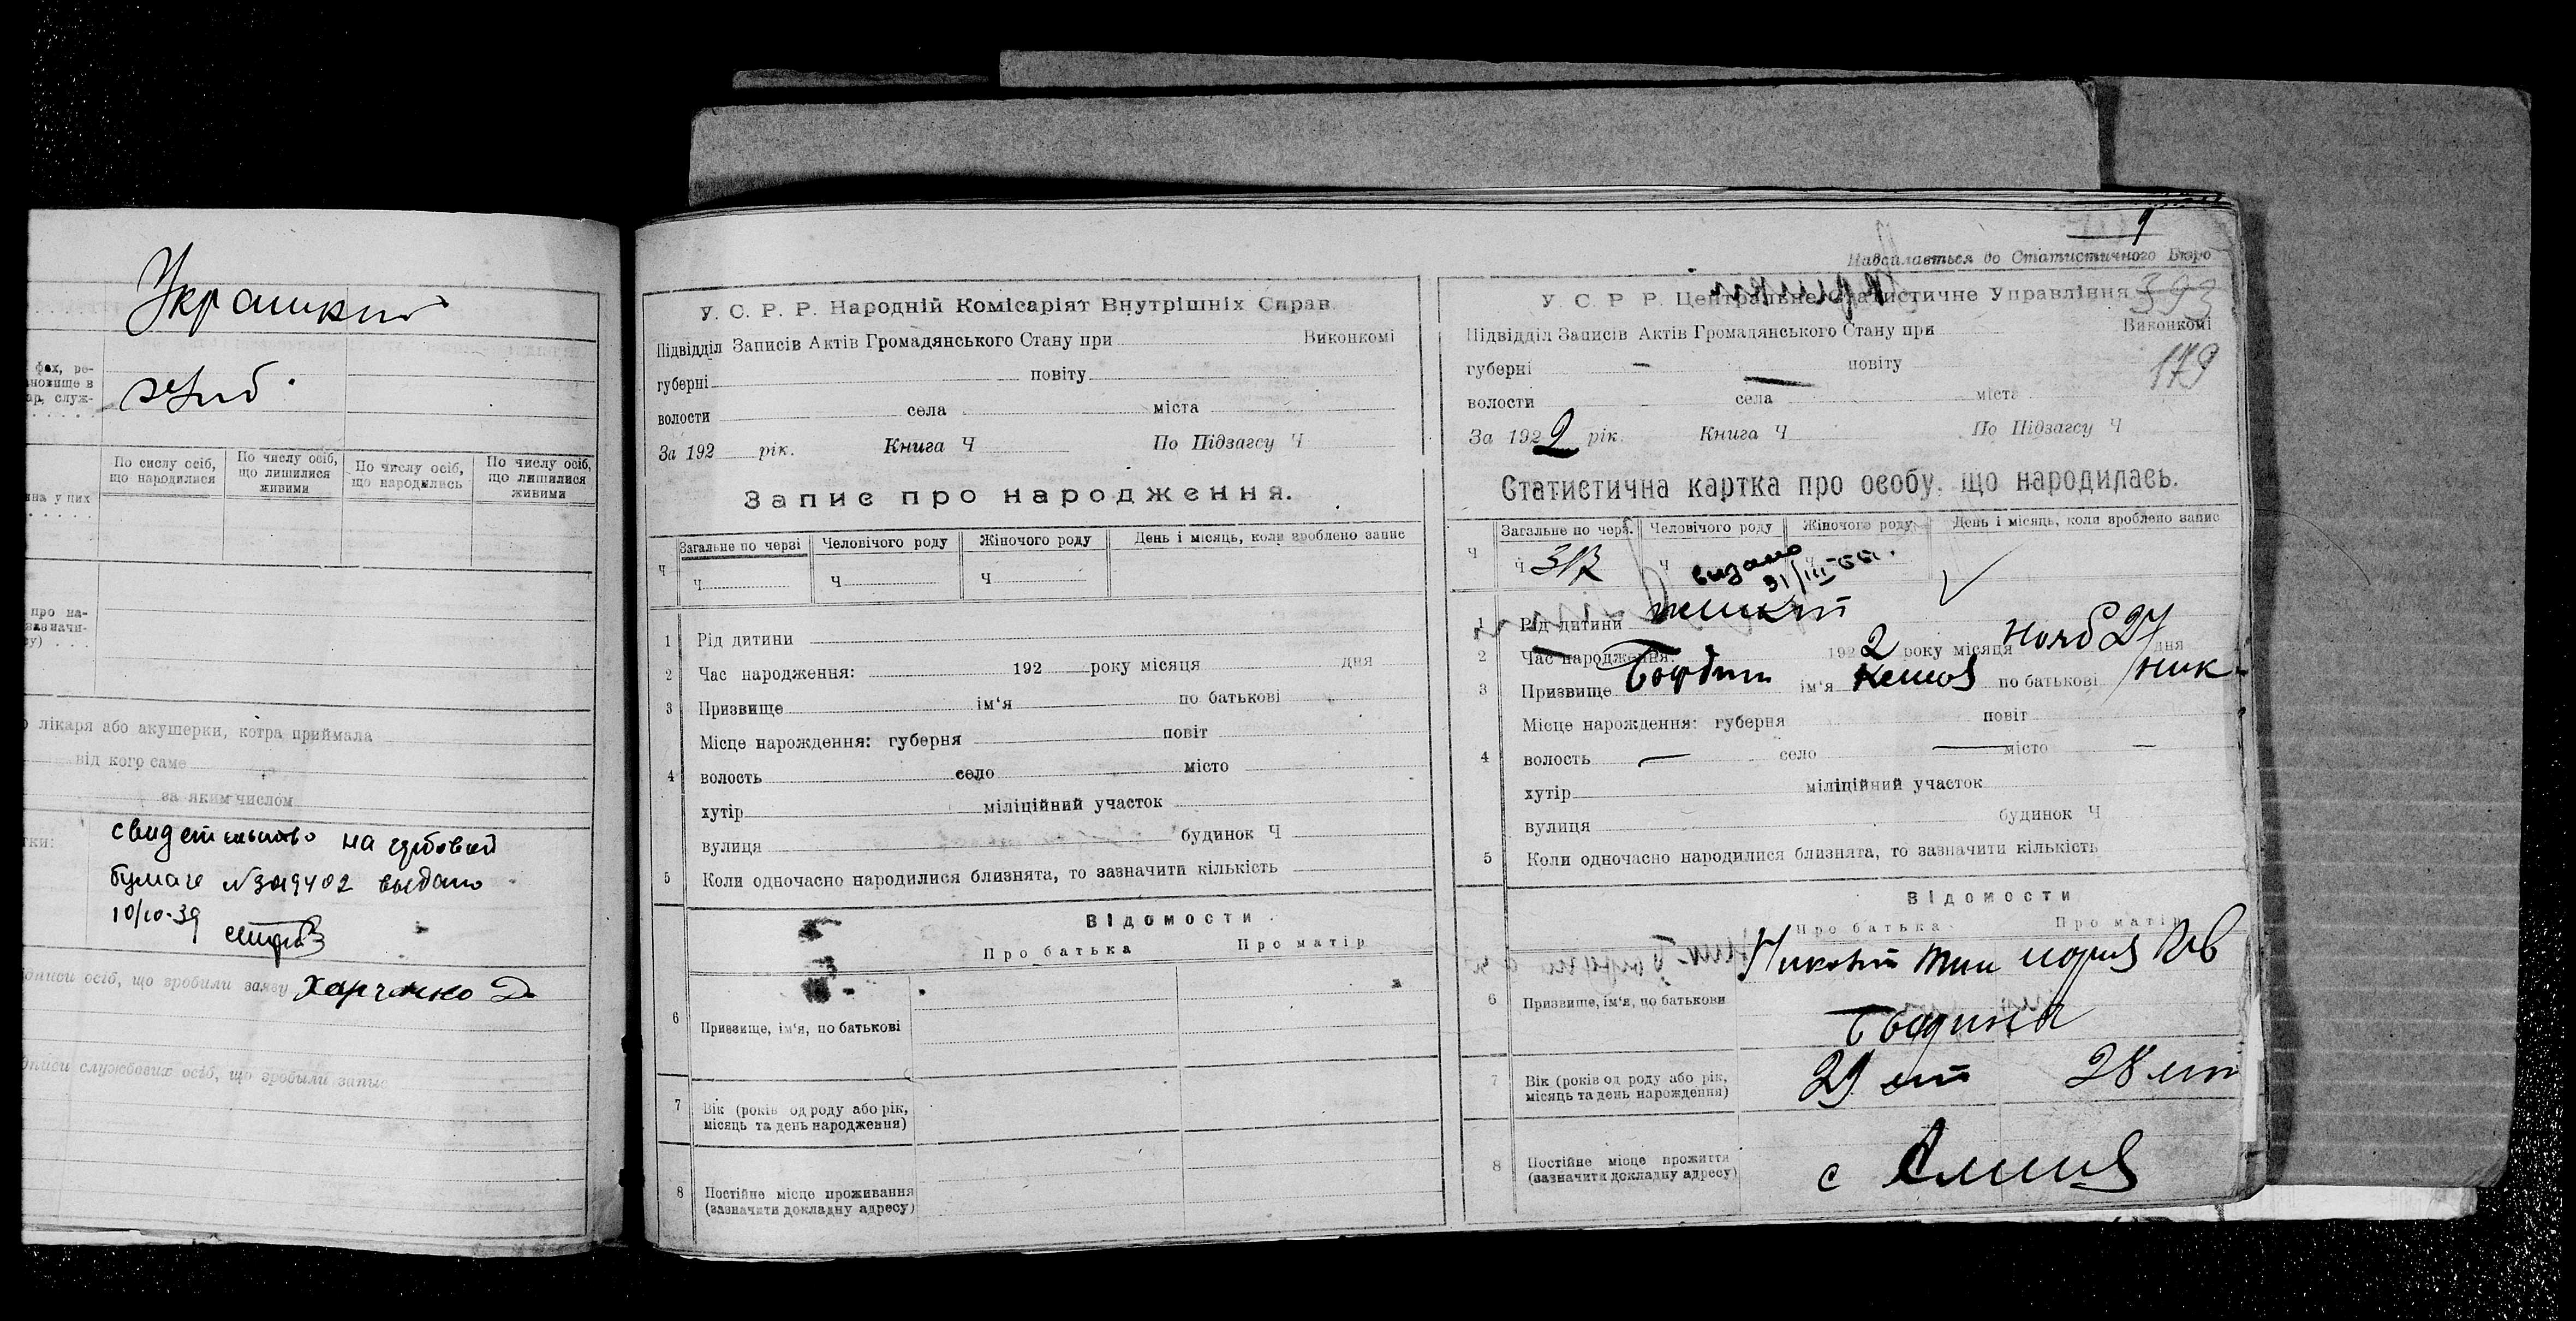 Украинкий
фах, ре-
новище в
ар, служ-
хліб.
По числу осіб, що народилися
По числу осіб, що лишилися живими
По числу осіб, що народились
По числу осіб, що лишилися живими
ина у них
про на-
зазначи-
ту) . . .
о лікаря або акушерки, котра приймала
від кого саме
за яким числом
тки:
свидетельство на гербовой
бумаге №3019402 выдано
10/10-39
ідписи осіб, що зробили заяву Харченко Д
ідписи службових осіб, що зробили запис
У. С. Р. Р. Народній Комісаріят Внутрішніх Справ.
Підвідділ Записів Актів Громадянського Стану при Виконкомі
губерні повіту
волости села міста
За 192 рік. Книга Ч По Підзагсу Ч
Запис про народження.
Ч Загальне по черзі Человічого роду Жіночого роду День і місяць, коли зроблено запис
Ч Ч Ч
1 Рід дитини
2 Час народження: 192 року місяця дня
3 Призвище ім'я по батькові
Місце народження: губерня повіт
4 волость село місто
хутір міліційний участок
вулиця будинок Ч
5 Коли одночасно народилися близнята, то зазначити кількість
Відомости
Про батька Про матір
6 Призвище, ім'я, по батькові
7 Вік (років од роду або рік,
місяць та день народження)
8 Постійне місце проживання
(зазначити докладну адресу)
Надсилається до Статистичного Бюро
У. С. Р. Р. Центральне Статистичне Управління 393
Підвідділ Записів Актів Громадянського Стану при Виконкомі
губерні повіту 179
волости села міста
За 1922 рік. Книга Ч По Підзагсу Ч
Статистична картка про особу, що народилась.
Ч Загальне по черз. Человічого роду Жіночого роду День і місяць, коли зроблено запис
Ч Ч видано
31/III
1 Рід дитини
2 Час народження: 1922 року місяця нояб 27 дня
3 Призвище ім'я по батькові Ник
Місце нарождення: губерня повіт
4 волость село місто
хутір міліційний участок
вулиця будинок Ч
5 Коли одночасно народилися близнята, то зазначити кількість
Відомости
Про батька Про матір
6 Призвище, ім'я, по батькови
7 Вік (років од роду або рік,
місяць та день нарождення) 29 лет 28 лет
8 Постійне місце прожиття
(зазначити докладну адресу) с